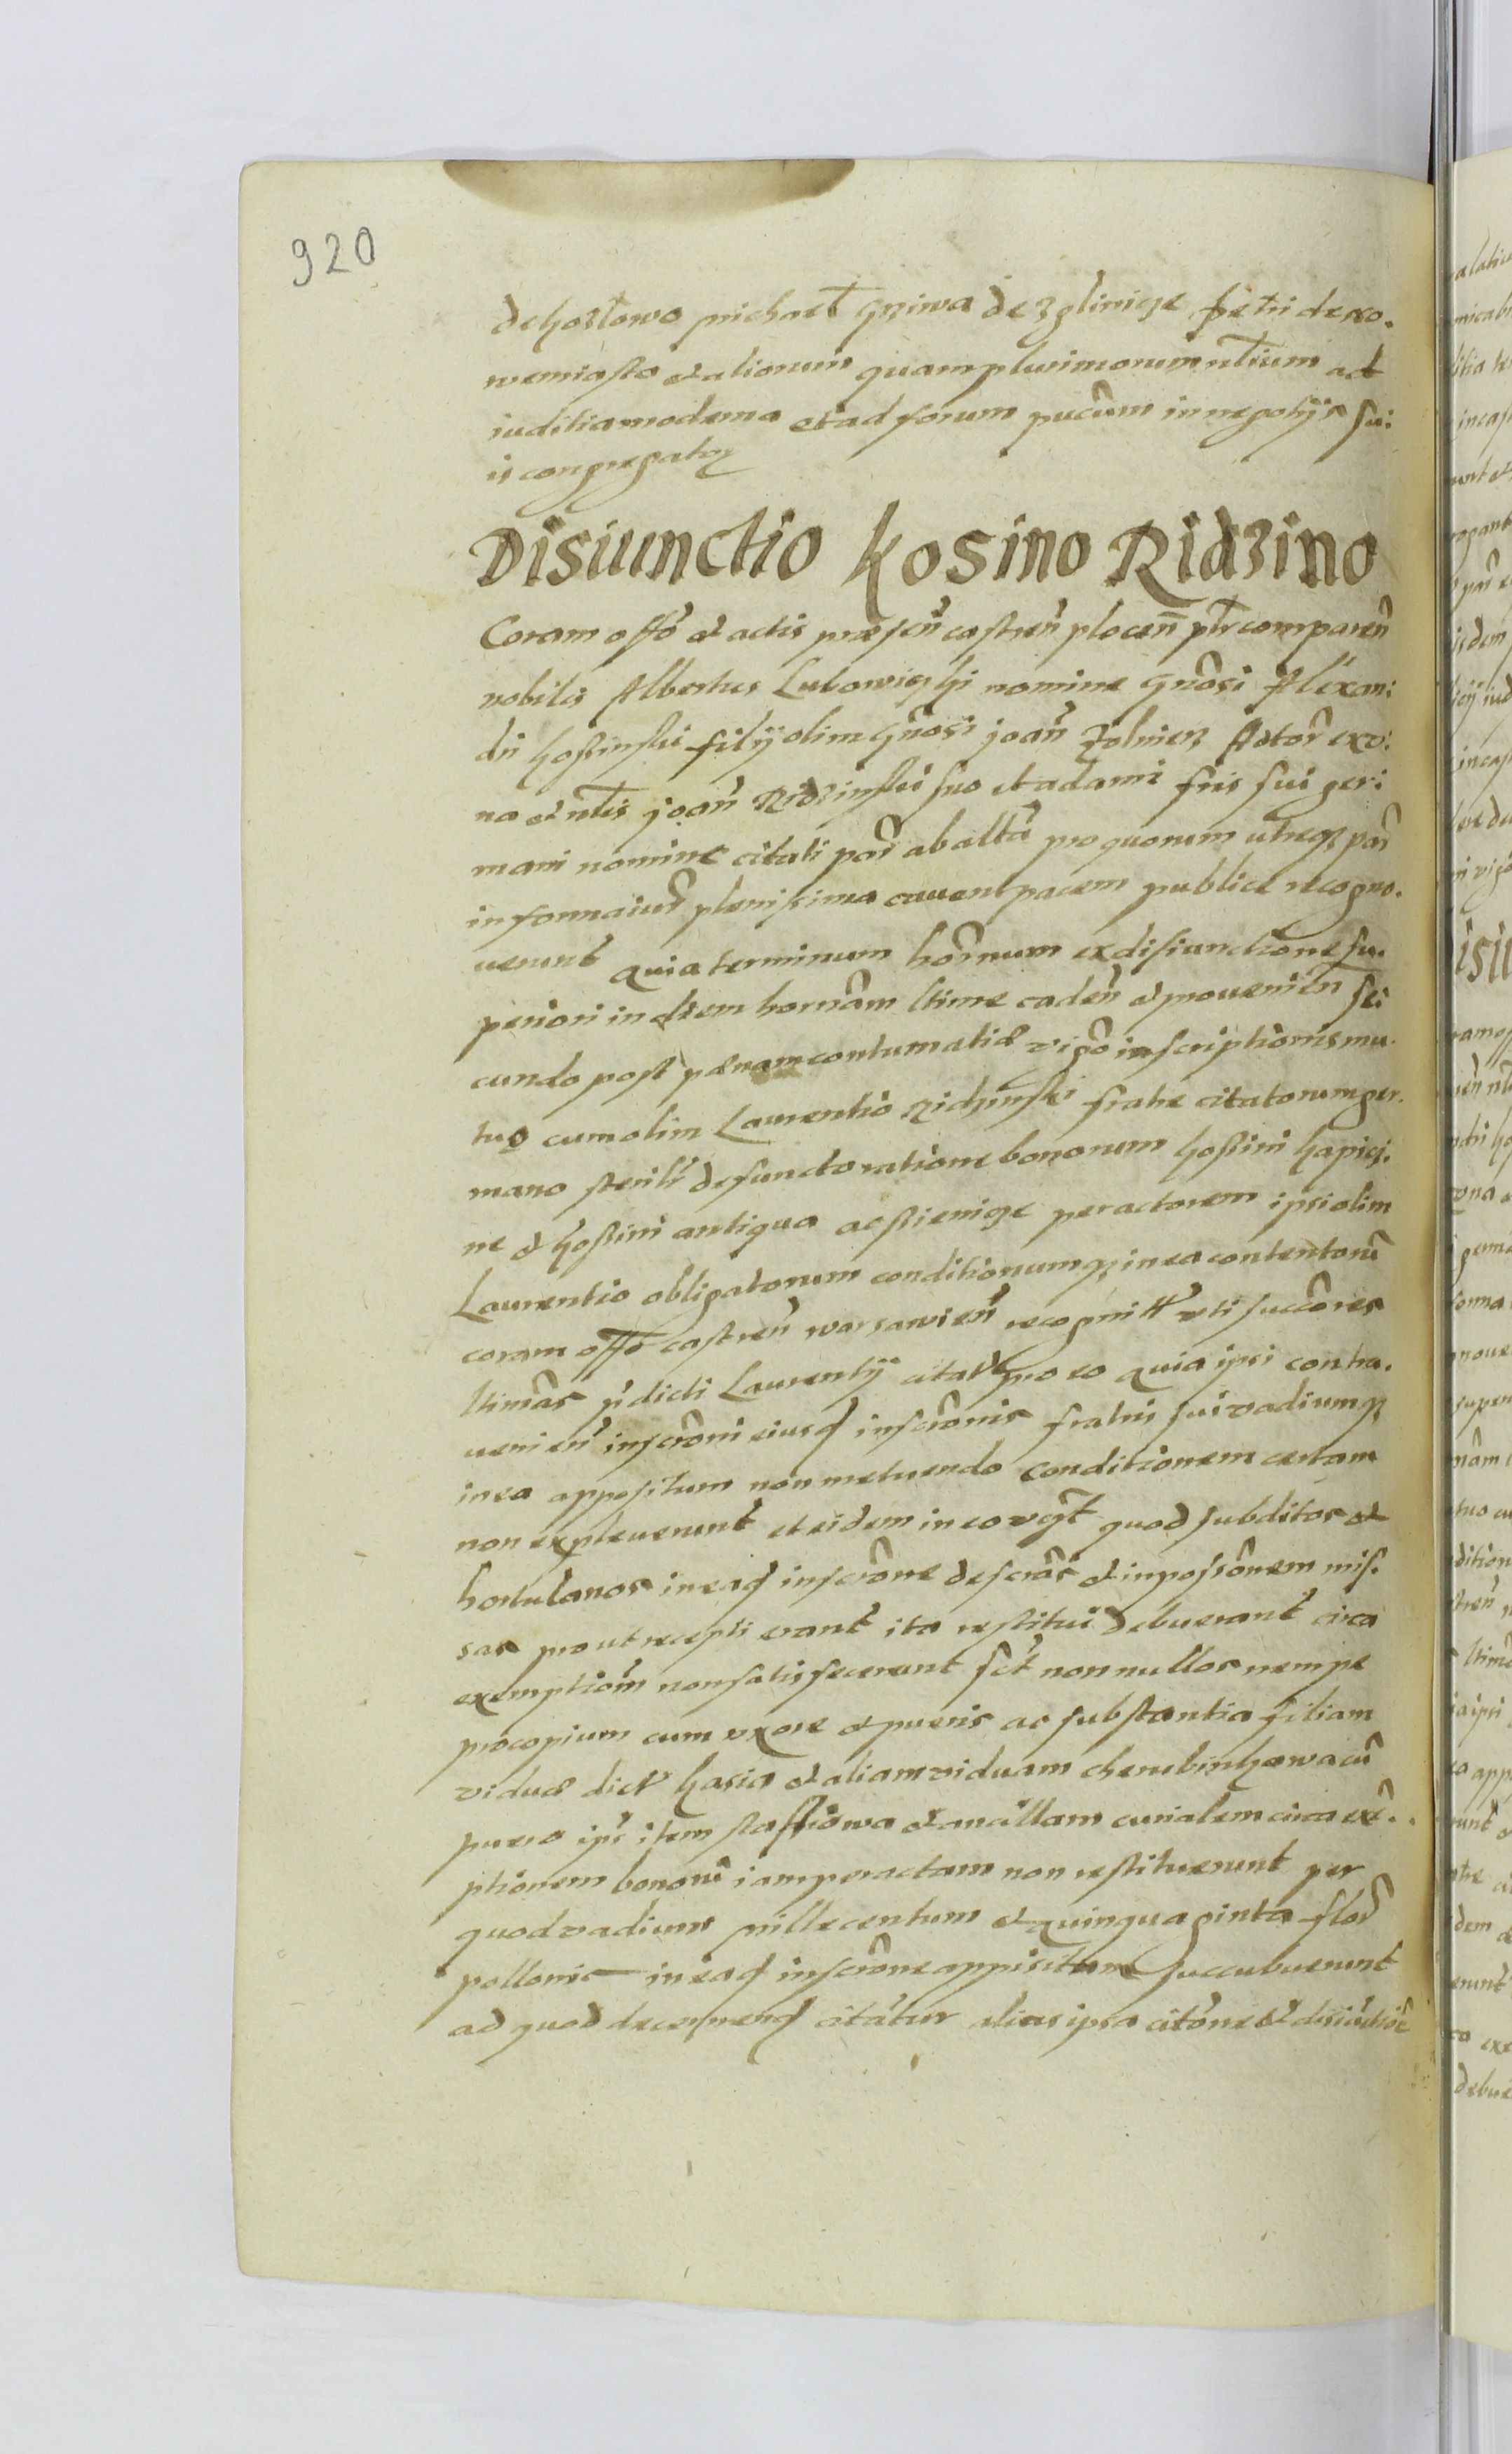 920
de hoslowo michael Grziwa de zglinicze petri de no.
wemiasto et aliorum quam plurimorum nlium ad
iuditia moderna et ad forum pucum in negotijs su:
is congregator
Disiunctio Kosino Ridzino
Coram offo et actis præsen castren plocen plr comparen
nobilis Albertus Lubowiczki nomine Gnosi Alexan:
dri Kossinski filij olim Gnosi joan Zolnierz Actor ex v:
na et nlis joan Ridzinski suo et adami fris sui ger:
mani nomine citati par ab alta pro quorum utraqz par
informaiur plenissima cavent pacem publice recogno.
uerunt quia terminum hornum ex disiunctione su.
periori in diem hornam ltime caden et provenien se:
cundo post pænam contumatiæ vigo inscriptionis mu.
tuo cum olim Laurentio Ridzinski fratre citatorum ger.
mano sterilr defuncto ratione bonorum Kossini Kapicz.
ne et Kossini antiqua ac sienicze per actorem ipsi olim
Laurentio obligatorum conditionumqz in ea contentoru
coram offo castren warsawien recognitt uti succores
ltimas p dicti Laurentij citat pro eo quia ipsi contra.
uenien inscroni eiusd inscronis fratris sui vadiumqz
in ea appositum non metuendo conditionem certam
non expleuerunt et eidem in eo quod subditos et
hortulanos in ead inscrone descras et in possronem mis.
sas prout recepti erant ita restitui debuerant circa
exemptiom non satisfecerunt sed nonnullos nempe
procopium cum vxore et pueris ac substantia filiam
viduæ dict hasia et aliam viduam cherubinkowa cu
puero ips item staskowa et ancillam curialem circa ex.
ptionem bonoru iam peractam non restituerunt per
quod vadium mille centum et quinquaginta flor
pollonic in ead inscrone appisitum succubuerunt
ad quod decernend citatur alias ipsa citone et disiuctioe